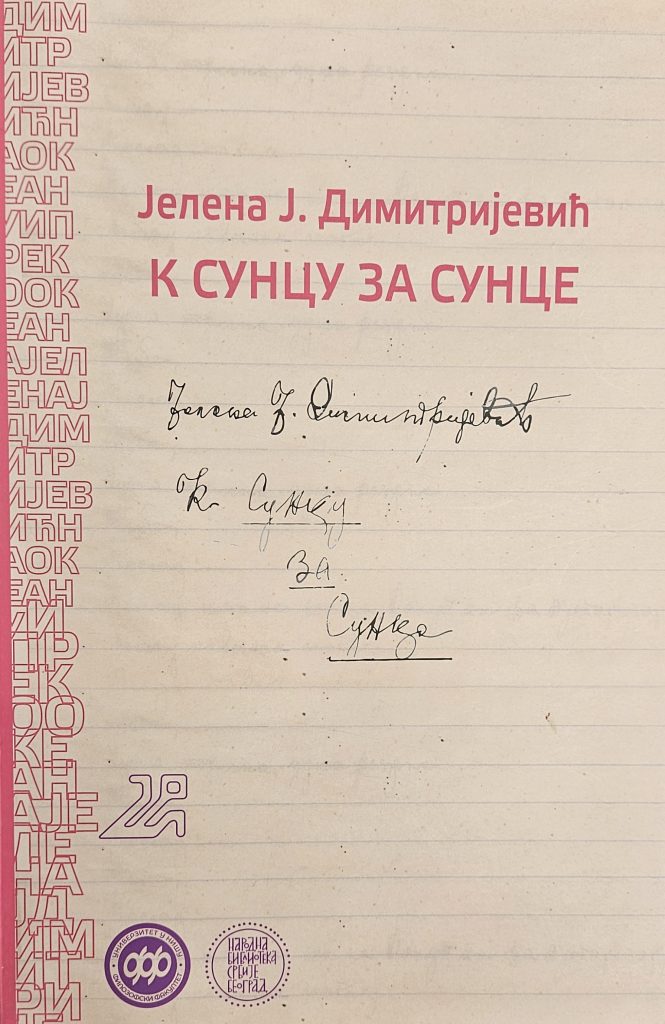 Јелена Ј. Димитријевић
К СУНЦУ ЗА СУНЦЕ
Јелена Ј. Димитријевић
К Сунцу
за
Сунце
ДИМ
ИТР
ИЈЕВ
ИЋН
АОК
ЕАН
УИП
РЕК
ООК
ЕАН
АЈЕЛ
ЕНАЈ
ДИМ
ИТР
ИЈЕВ
ИЋН
АОК
ЕАН
УИ
ПР
ЕК
ОО
КЕ
АН
АЈЕ
ЛЕ
НА
ЈД
ИМ
ИТ
РИ
УНИВЕРЗИТЕТ У НИШУ
ФИЛОЗОФСКИ ФАКУЛТЕТ
НАРОДНА
БИБЛИОТЕКА
СРБИЈЕ
БЕОГРАД